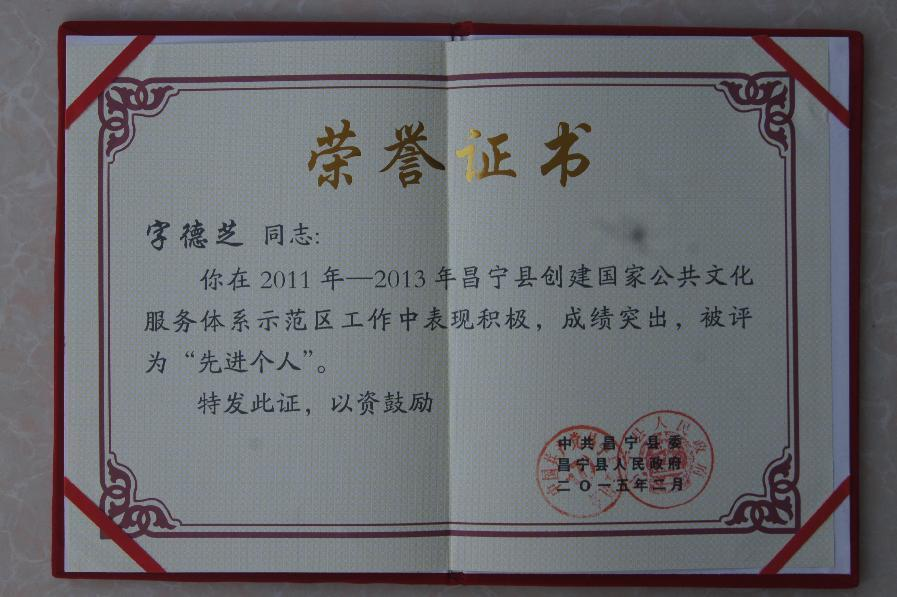 荣誉证书
字德芝 同志:
你在 2011 年—2013 年昌宁县创建国家公共文化
服务体系示范区工作中表现积极，成绩突出，被评
为“先进个人”。
特发此证，以资鼓励
中共昌宁县委
昌宁县人民政府
二〇一五年二月